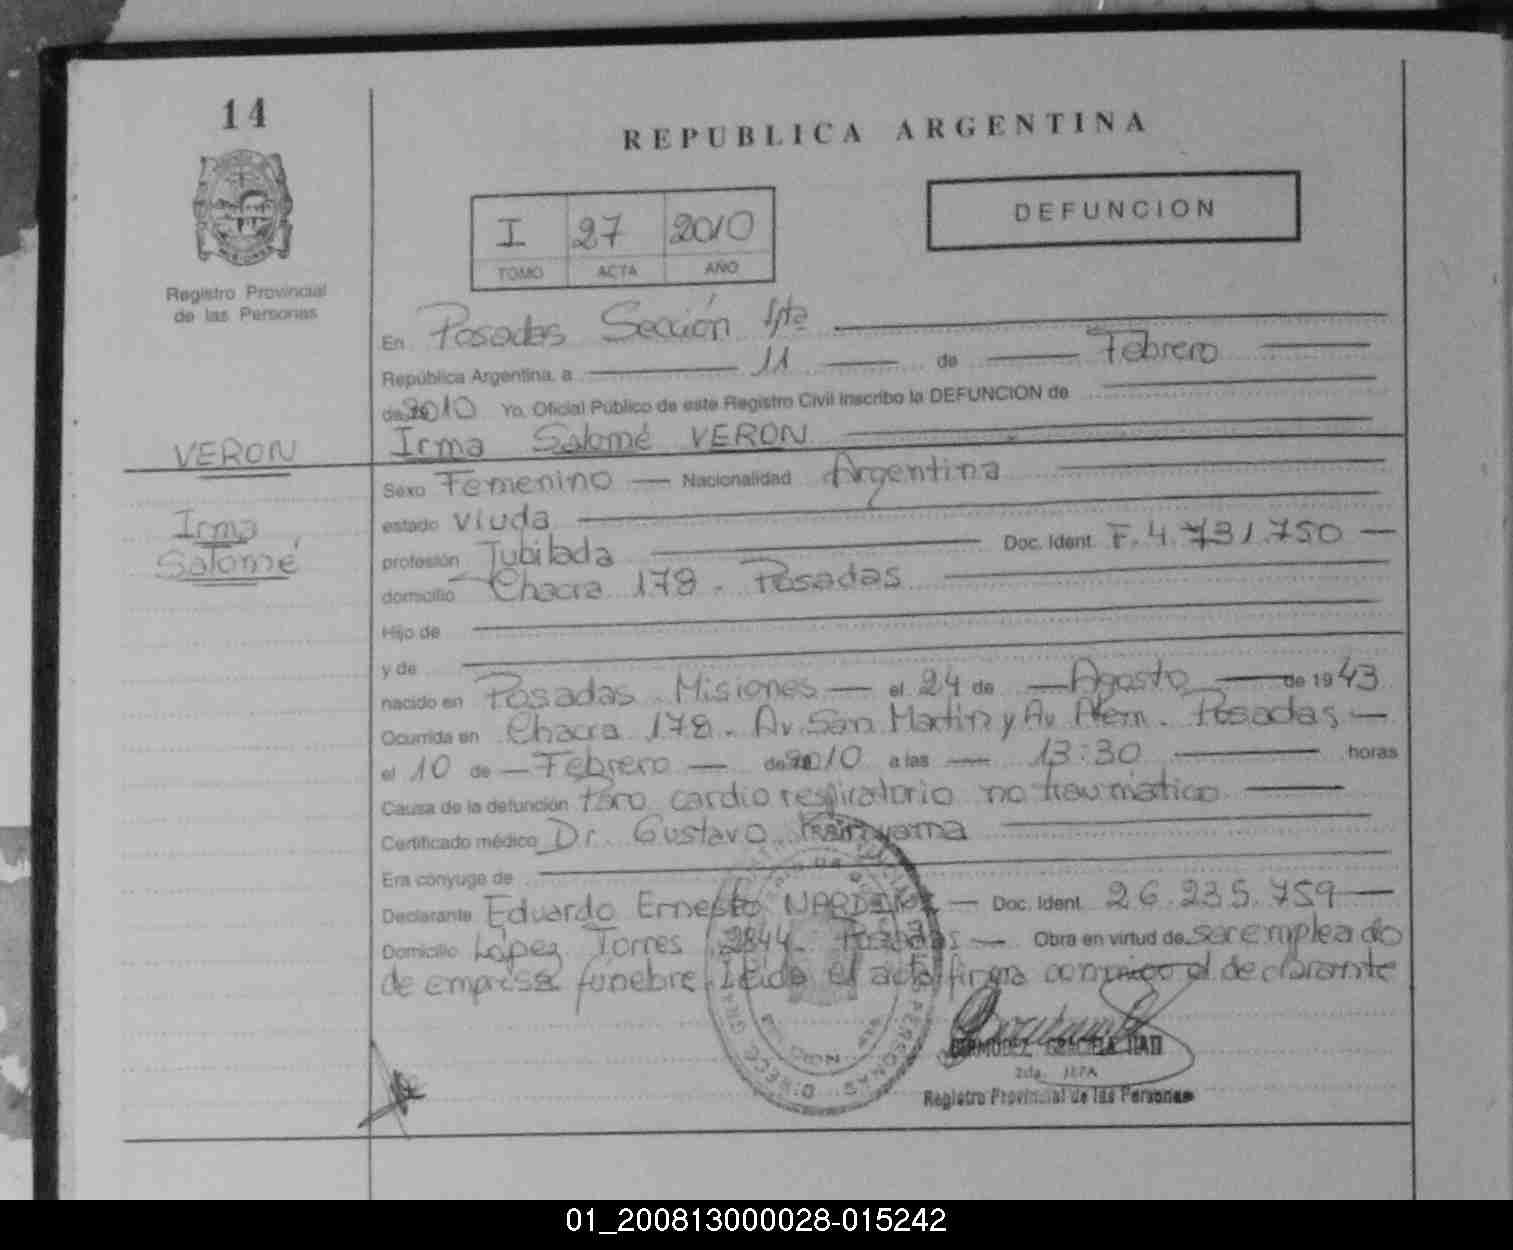 14
REPUBLICA ARGENTINA
Registro Provincial
de las Personas
I 27 2010
TOMO ACTA AÑO
DEFUNCION
En Posadas Sección 1ra
República Argentina, a 11 de Febrero
de 2010 Yo, Oficial Público de este Registro Civil inscribo la DEFUNCION de
VERON
Irma Salomé VERON
Irma
Salomé
Sexo Femenino Nacionalidad Argentina
estado viuda
profesión Jubilada Doc. Ident. F. 4.731.750
domicilio Chacra 178 - Posadas
Hijo de
y de
nacido en Posadas Misiones el 24 de Agosto de 1943
Ocurrida en Chacra 178 - Av. San Martin y Av. Alem. Posadas
el 10 de Febrero de 2010 a las 13:30 horas
Causa de la defunción Paro cardiorespiratorio no traumático
Certificado médico Dr. Gustavo
Era cónyuge de
Declarante Eduardo Ernesto Doc. Ident. 26.235.759
Domicilio López Torres 2844 - Posadas Obra en virtud de ser empleado
de empresa funebre. Leida el acta firma conmigo el declarante
BERMUDEZ GRACIELA
2da. JEFA
Registro Provincial de las Personas
01_200813000028-015242